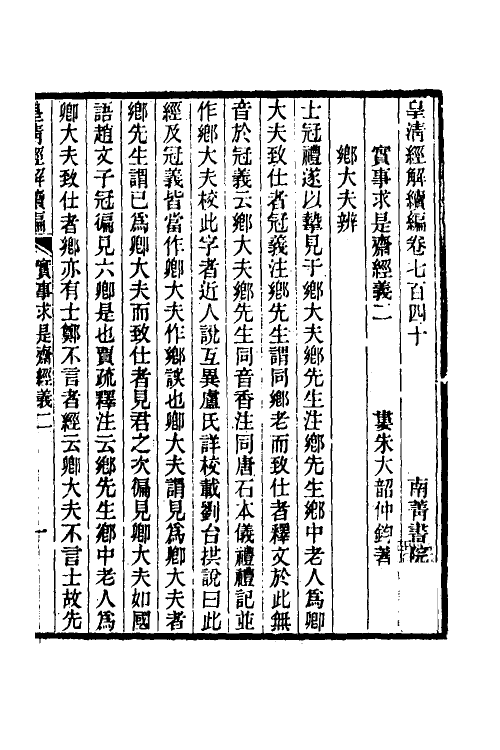 皇清經解續編卷七百四十 南菁書院
實事求是齋經義二 婁朱大韶仲鈞著
鄉大夫辨
士冠禮遂以摯見于鄉大夫鄉先生注鄉先生鄉中老人爲卿
大夫致仕者冠義注鄉先生謂同鄉老而致仕者釋文於此無
音於冠義云鄉大夫鄉先生同音香注同唐石本儀禮禮記並
作鄉大夫校此字者近人說互異盧氏詳校載劉台拱說曰此
經及冠義皆當作卿大夫作鄉誤也卿大夫謂見爲卿大夫者
鄉先生謂已爲卿大夫而致仕者見君之次徧見卿大夫如國
語趙文子冠徧見六卿是也賈疏釋注云鄉先生鄉中老人爲
卿大夫致仕者鄉亦有士鄭不言者經云卿大夫不言士故先
皇清經解續編 實事求是齋經義二 一